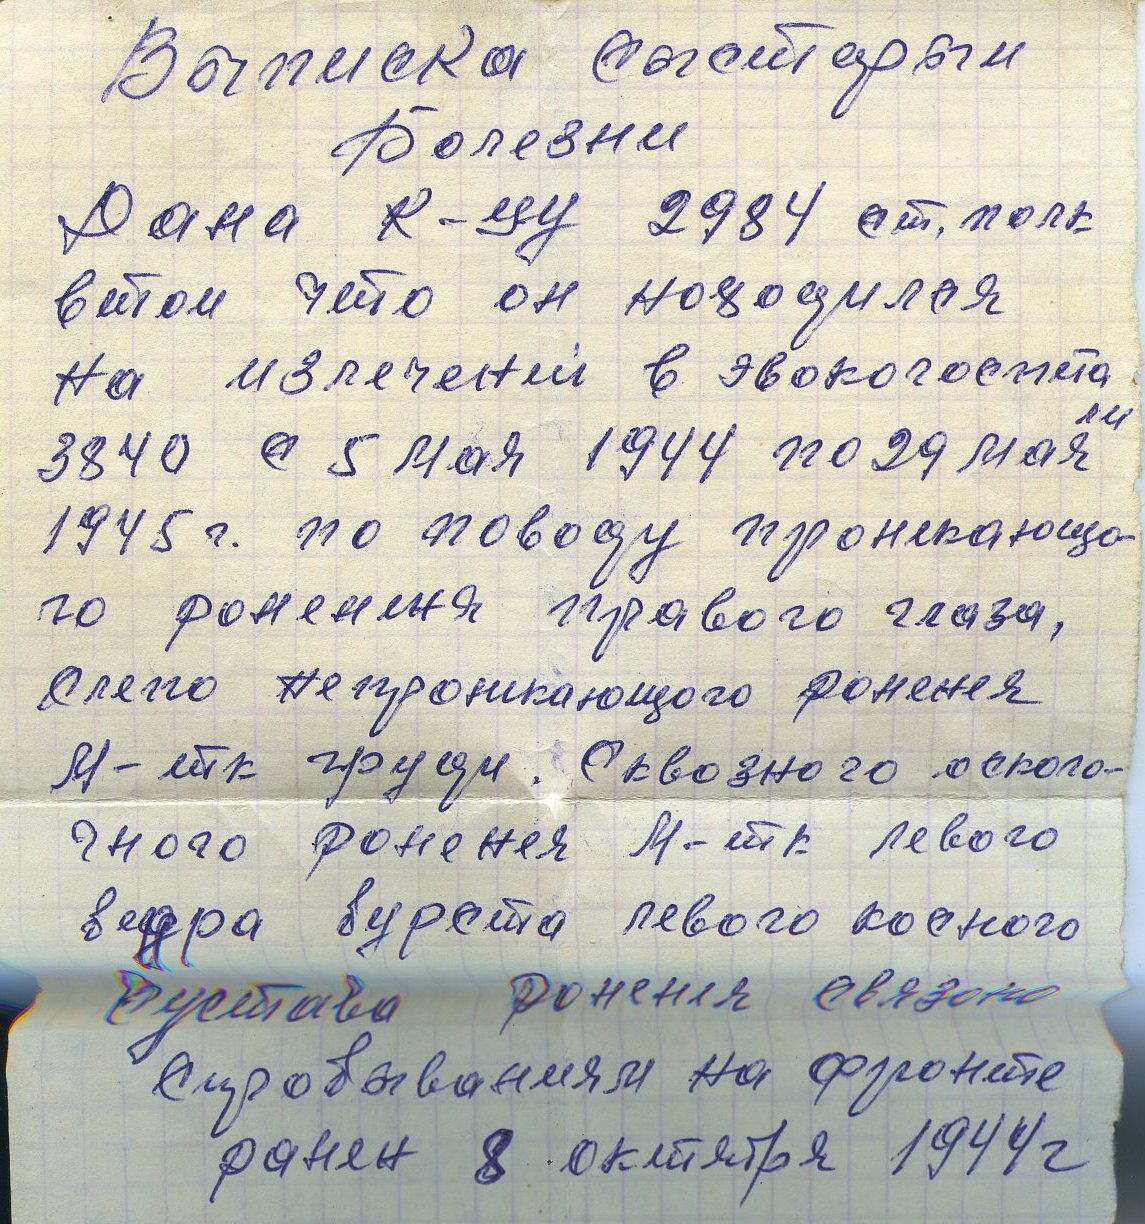 Выписка сыстары
Болезни
Дана к-цу 2984 ст. полк
втом что он ноходился
на излечений в эвокогоспита
лй
3840 с 5 мая 1944 по 29 мая
1945 г. по поводу проникающо-
го ронения правого глаза,
Слепо непроникающого роненея
М-тк груди. Сквозного осколо-
чного роненея М-тк левого
бедра бурста левого косного
Сустава ронения связоно
Спробываниям на фронте
ранен 8 октября 1944 г